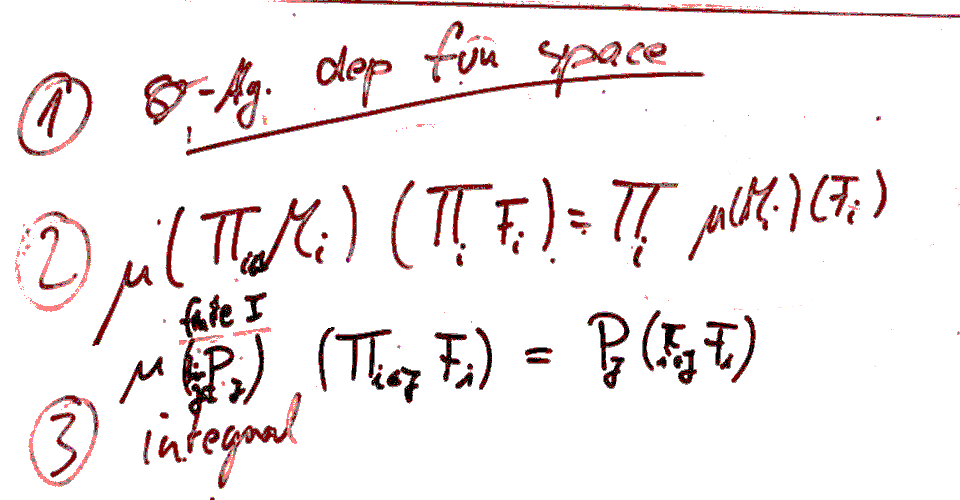 ① σ-Alg. dep fun space
② μ(Π M_i) (Π_i F_i) = Π_i μ(M_i)(F_i)
finite I
μ( P_J) (Π_{i∈J} F_i) = P_J( F_i)
③ integral